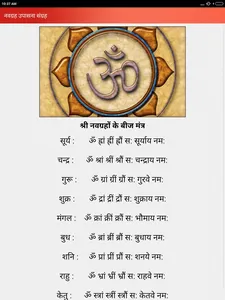 10:37 AM
नवग्रह उपासना संग्रह
ॐ
श्री नवग्रहों के बीज मंत्र
सूर्य : ॐ ह्रां ह्रीं ह्रौं स: सूर्याय नम:
चन्द्र : ॐ श्रां श्रीं श्रौं स: चन्द्राय नम:
गुरू : ॐ ग्रां ग्रीं ग्रौं स: गुरवे नम:
शुक्र : ॐ द्रां द्रीं द्रौं स: शुक्राय नम:
मंगल : ॐ क्रां क्रीं क्रौं स: भौमाय नम:
बुध : ॐ ब्रां ब्रीं ब्रौं स: बुधाय नम:
शनि : ॐ प्रां प्रीं प्रौं स: शनये नम:
राहु : ॐ भ्रां भ्रीं भ्रौं स: राहवे नम:
केतु : ॐ स्त्रां स्त्रीं स्त्रौं स: केतवे नम: